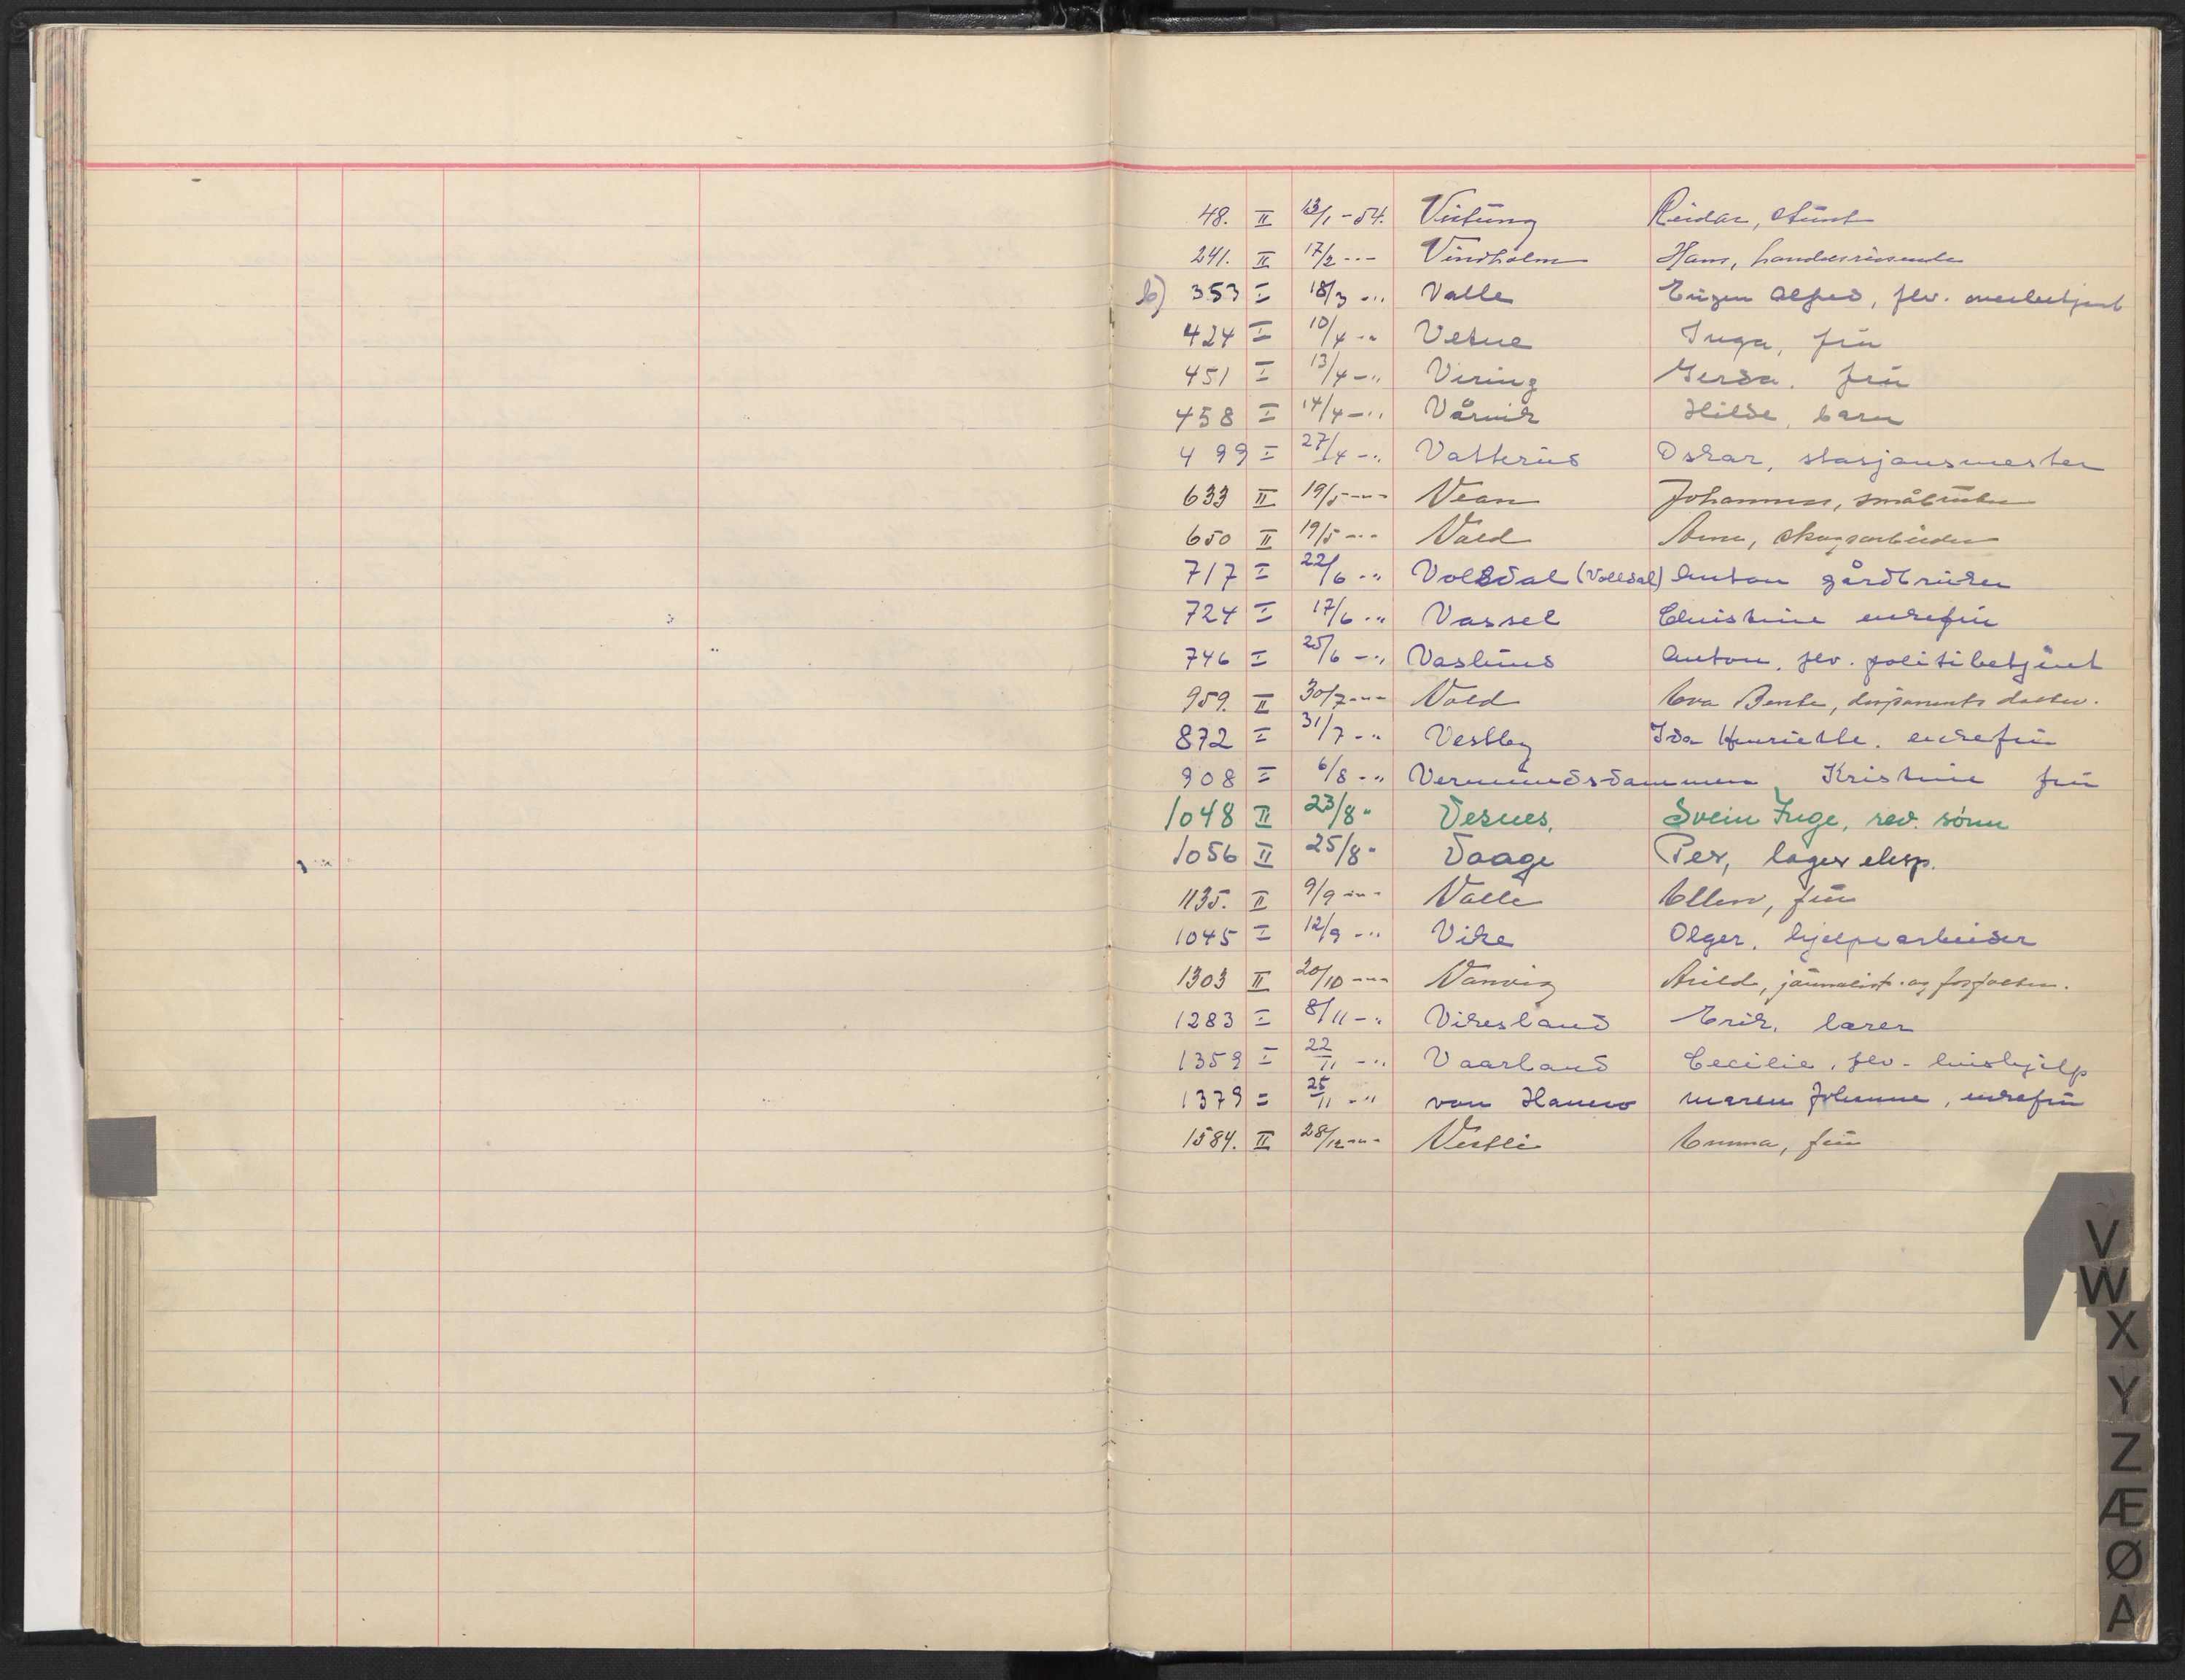 48. II 13/1 - 54. Vistung Reidar, stud.
241. II 17/2 - " - Vindholm Hans, handelsreisende
b) 353 I 18/3 - " Valle Eugen Alfred, flv. overbetjent
424 I 10/4 - " Vetne Inga, frú
451 I 13/4 - " Viring Gerda. frú
458 I 14/4 - " Vårvik Hilde, barn
499 I 27/4 - " Vatterud Oskar, stasjonsmester
633 II 19/5 - " - Vean Johannes, småbruker
650 II 19/5 - " - Vold Arne, skogsarbeider
717 I 22/6 - " Volddal (Volldal) Anton gårdbruker
724 I 17/6 - " Vassel Christine enkefrú
746 I 25/6 - " Vaslúnd Anton, flv. politibetjent
959. II 30/7 - " - Vold Eva Bente, disponents datter.
872 I 31/7 - " Vestby Ida Henriette. enkefrú
908 I 6/8 - " Vermúndsdammen Kristine frú
1048 II 23/8 " Vesnes, Svein Inge, red. sønn
1056 II 25/8 " Vaage Per, lager eksp.
1135. II 9/9 - " - Valle Ellen, frú
1045 I 12/9 - " Vike Olger, hjelpearbeider
1303 II 20/10 - " - Vanvig Arild, journalist og forfatter.
1283 I 8/11 - " Vikesland Erik, lærer
1359 I 22/11 - " Vaarland Cecilie, flv. húshjelp
1379 = 25/11 - " von Hanno maren Johanne, enkefrú
1584. II 28/12 - " - Vestli Emma, frú
V
W
X
Y
Z
Æ
Ø
A